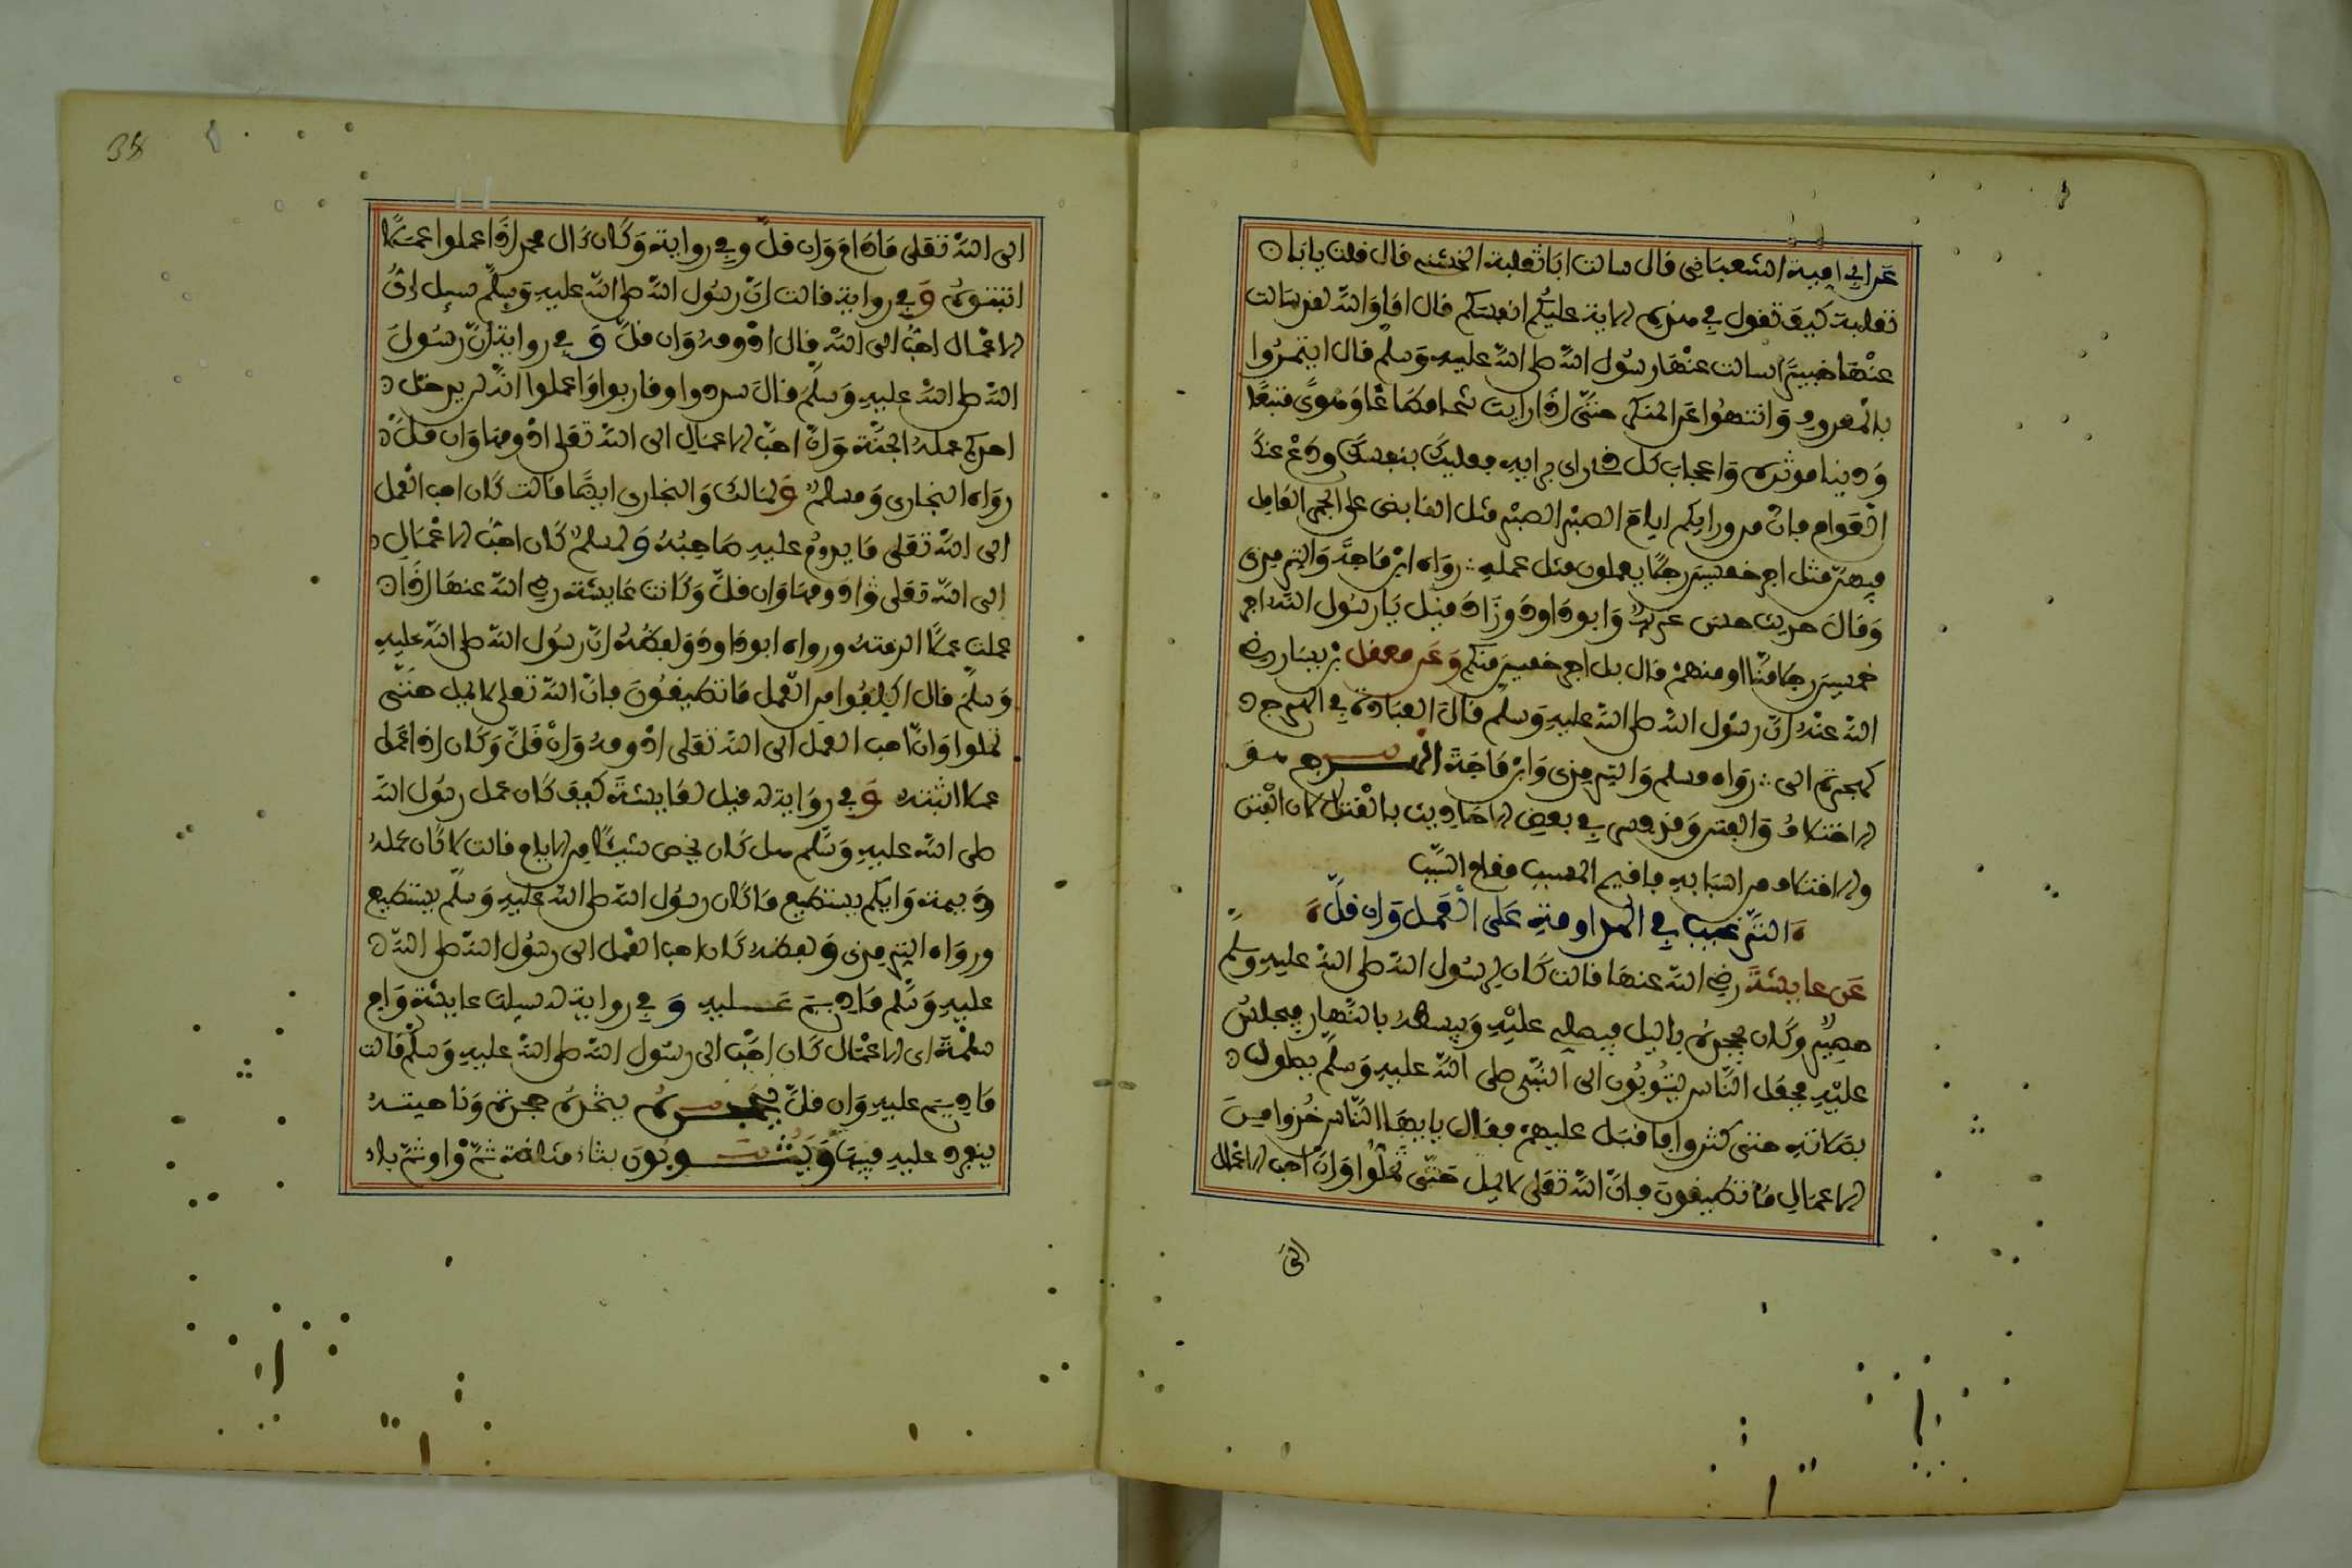 عن ابي امية الشعباني قال سالت ابا ثعلبة الخشني قال قلت يا ابا
ثعلبة كيف تقول في هذه الاية عليكم انفسكم قال اما والله لقد سالت
عنها خبيرا سالت عنها رسول الله صلى الله عليه وسلم قال ايتمروا
بالمعروف وانتهوا عن المنكر حتى اذا رايت شحا مطاعا وهوى متبعا
ودنيا موثرة واعجاب كل ذي راي برايه فعليك بنفسك ودع عنك
العوام فان من ورايكم ايام الصبر الصبر فيهن مثل القابض على الجمر للعامل
فيهن مثل اجر خمسين رجلا يعملون مثل عمله رواه ابن ماجة والترمذي
وقال حديث حسن غريب وابو داود وزاد قيل يا رسول الله اجر
خمسين رجلا منا او منهم قال بل اجر خمسين منكم وعن معقل بن يسار رضي
الله عنه ان رسول الله صلى الله عليه وسلم قال العبادة في الهرج
كهجرة الي رواه مسلم والترمذي وابن ماجة الهرج هو
الاختلاف والفتن وقد فسر في بعض الاحاديث بالقتل لان الفتن
والاختلاف من اسبابه فاقيم المسبب مقام السبب
الترغيب في المداومة على العمل وان قل
عن عايشة رضي الله عنها قالت كان لرسول الله صلى الله عليه وسلم
حصير وكان يحجره بالليل فيصلي عليه ويبسطه بالنهار فيجلس
عليه فجعل الناس يثوبون الى النبي صلى الله عليه وسلم يصلون
بصلاته حتى كثروا فاقبل عليهم فقال يا ايها الناس خذوا من
الاعمال ما تطيقون فان الله تعلى لا يمل حتى تملوا وان احب الاعمال
الى
38
الى الله تعلى ما دام وان قل وفي رواية وكان ءال محمد اذا عملوا عملا
اثبتوه وفي رواية قالت ان رسول الله صلى الله عليه وسلم سيل اي
الاعمال احب الى الله قال ادومه وان قل وفي رواية ان رسول
الله صلى الله عليه وسلم قال سددوا وقاربوا واعلموا انه لن يدخل
احدكم عمله الجنة وان احب الاعمال الى الله تعلى ادومها وان قل
رواه البخاري ومسلم ولمالك والبخاري ايضا قالت كان احب العمل
الى الله تعلى ما يدوم عليه صاحبه ولمسلم كان احب الاعمال
الى الله تعلى ادومها وان قل وكانت عايشة رضي الله عنها اذا
عملت عملا لزمته ورواه ابو داود ولفظه ان رسول الله صلى الله عليه
وسلم قال اكلفوا من العمل ما تطيقون فان الله تعلى لا يمل حتى
تملوا وان احب العمل الى الله تعلى ادومه وان قل وكان اذا عمل
عملا اثبته وفي رواية له قيل لعايشة كيف كان عمل رسول الله
صلى الله عليه وسلم هل كان يخص شيئا من الايام قالت لا كان عمله
ديمة وايكم يستطيع ما كان رسول الله صلى الله عليه وسلم يستطيع
ورواه الترمذي ولفظه كان احب العمل الى رسول الله صلى الله
عليه وسلم ما ديم عليه وفي رواية له سيلت عايشة وام
سلمة اي الاعمال كان احب الى رسول الله صلى الله عليه وسلم قالت
ما ديم عليه وان قل يحجره يتخذه حجرة وناحيته
ينفرد عليه فيها ويثوبون بثاء مثلثة ثم واو ثم باء